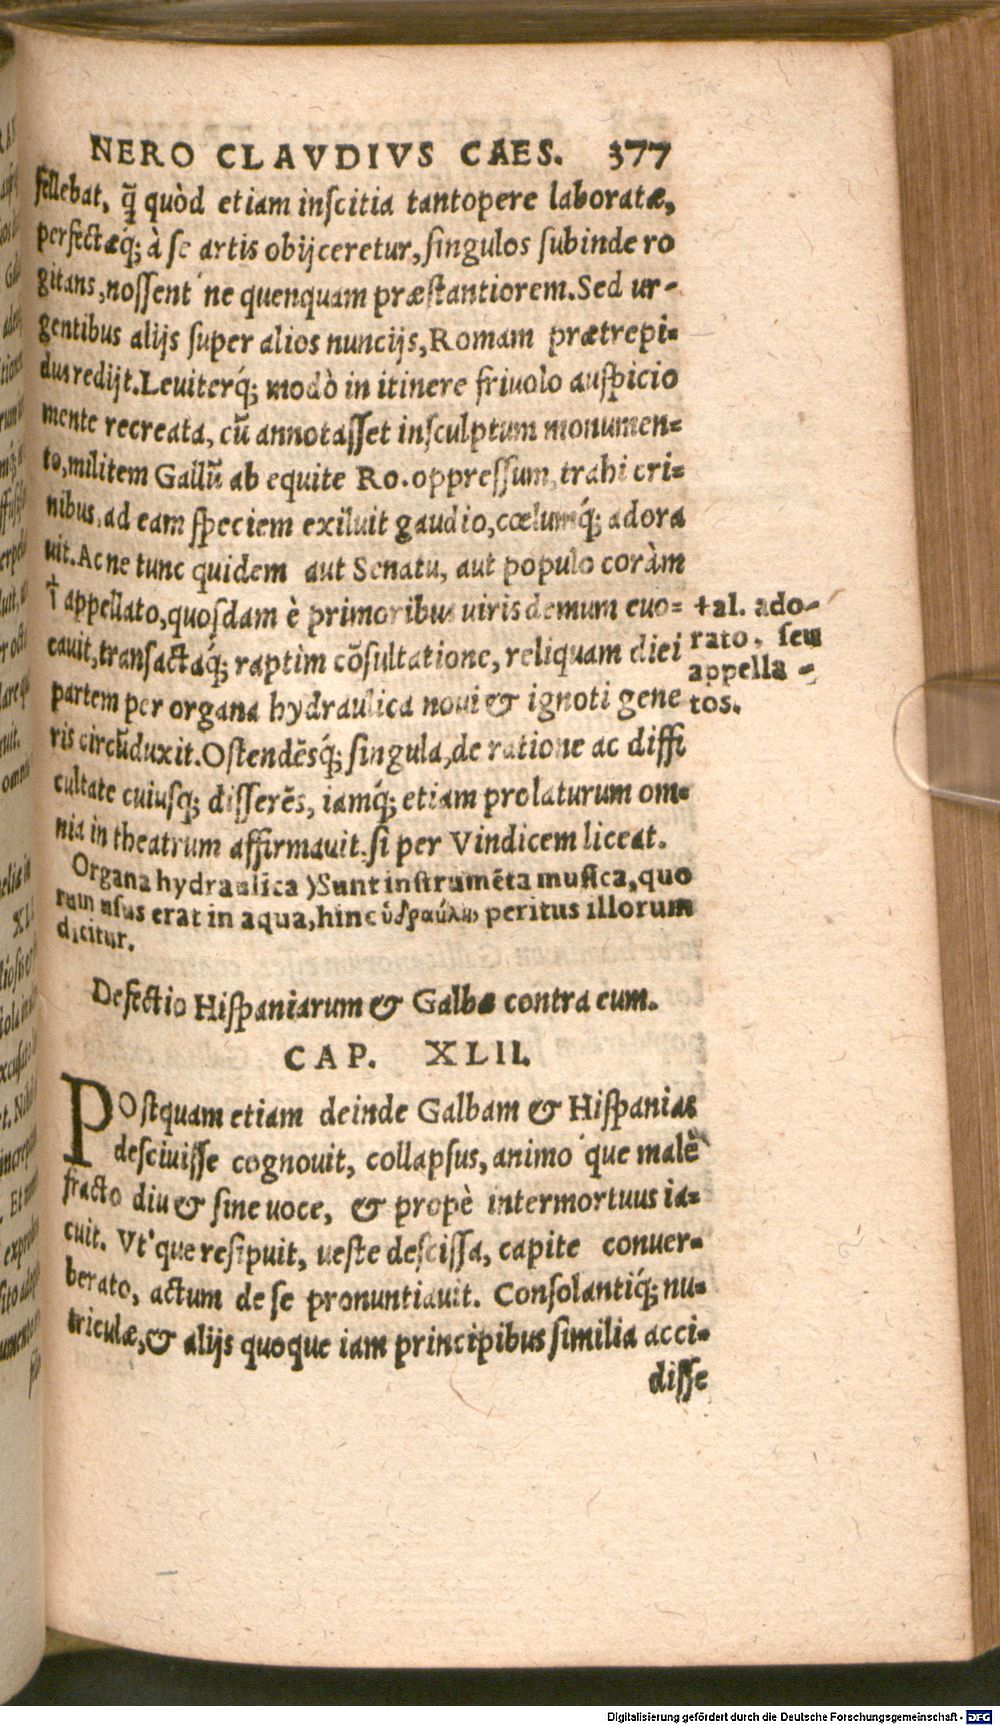 NERO CLAVDIVS CAES. 377
fellebat, q̃ quòd etiam inscitia tantopere laboratæ,
perfectæq́; à se artis obijceretur, singulos subinde ro
gitans, nossent ne quenquam præstantiorem. Sed ur-
gentibus alijs super alios nuncijs, Romam prætrepi-
dus redijt. Leuiterq́; modò in itinere friuolo auspicio
mente recreata, cũ annotasset insculptum monumen-
to, militem Gallũ ab equite Ro. oppressum, trahi cri-
nibus, ad eam speciem exiluit gaudio, cœlumq́; adora
uit. Ac ne tunc quidem aut Senatu, aut populo coràm
† appellato, quosdam è primoribus uiris demum euo-
cauit, transactaq́; raptim cõsultatione, reliquam diei
partem per organa hydraulica noui & ignoti gene
ris circũduxit. Ostendẽsq́; singula, de ratione ac diffi
cultate cuiusq; disserẽs, iamq́; etiam prolaturum om-
nia in theatrum affirmauit, si per Vindicem liceat.
†al. ado-
rato, seu
appella-
tos.
Organa hydraulica )Sunt instrumẽta musica, quo
rum usus erat in aqua, hinc ὑδραύλης peritus illorum
dicitur.
Defectio Hispaniarum & Galbæ contra eum.
CAP. XLII.
POstquam etiam deinde Galbam & Hispanias
desciuisse cognouit, collapsus, animo que malè
fracto diu & sine uoce, & propè intermortuus ia-
cuit. Vt que resipuit, ueste descissa, capite conuer-
berato, actum de se pronuntiauit. Consolantiq́; nu-
triculæ, & alijs quoque iam principibus similia acci-
disse
Digitalisierung gefördert durch die Deutsche Forschungsgemeinschaft - DFG